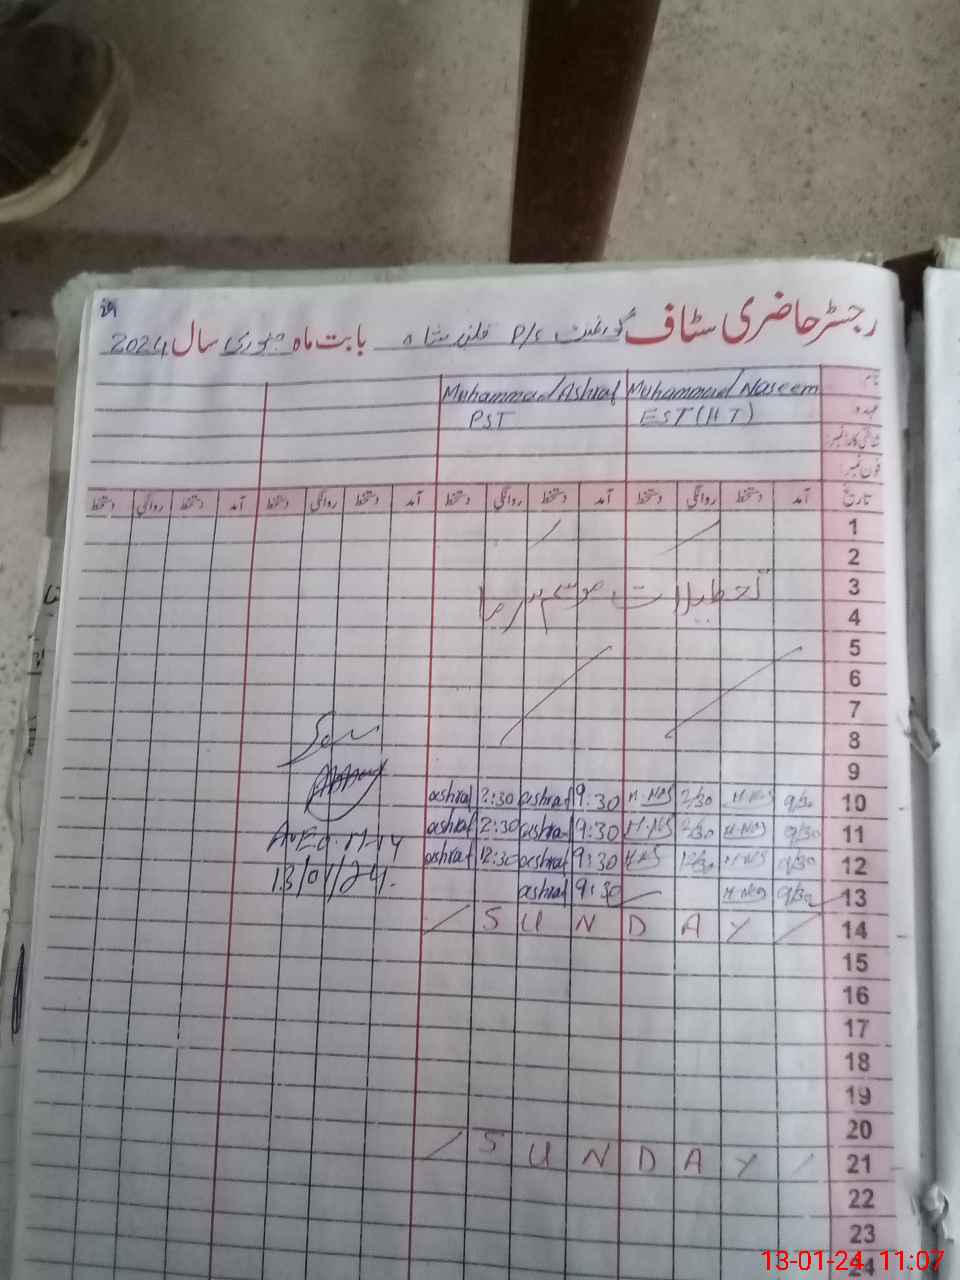 رجسٹر حاضری سٹاف گورنمنٹ P/S قلندر شاہ بابت ماہ جنوری سال 2024
نام Muhammad Naseem Muhammad Ashraf
عہدہ EST (HT) PST
شناختی کارڈ نمبر:
فون نمبر:
تاریخ آمد دستخط روانگی دستخط آمد دستخط روانگی دستخط آمد دستخط روانگی دستخط آمد دستخط روانگی دستخط
1
2
3 تعطیلات موسم سرما
4
5
6
7
8
9
10 9/30 M.NAS 2/30 M.NAS 9:30 ashraf 2:30 ashraf
11 9/30 M.NAS 2/30 M.NAS 9:30 ashraf 2:30 ashraf
12 9/30 M.NAS 12/30 M.NAS 9:30 ashraf 12:30 ashraf
13 9/30 M.NAS 9:30 ashraf
13/01/24.
14 SUNDAY
15
16
17
18
19
20
21 SUNDAY
22
23
24
13-01-24 11:07